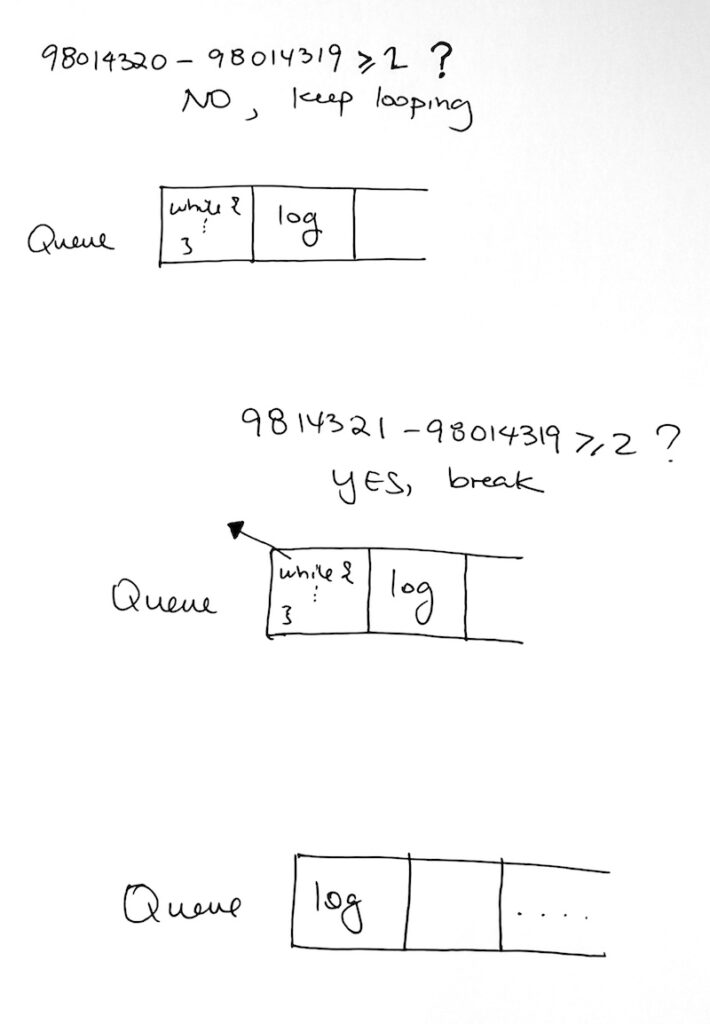 98014320 - 98014319 ⩾ 2 ?
NO, keep looping
Queue
while {
⋮
}
log
9814321 - 98014319 ⩾ 2 ?
YES, break
Queue
while {
⋮
}
log
Queue
log
....